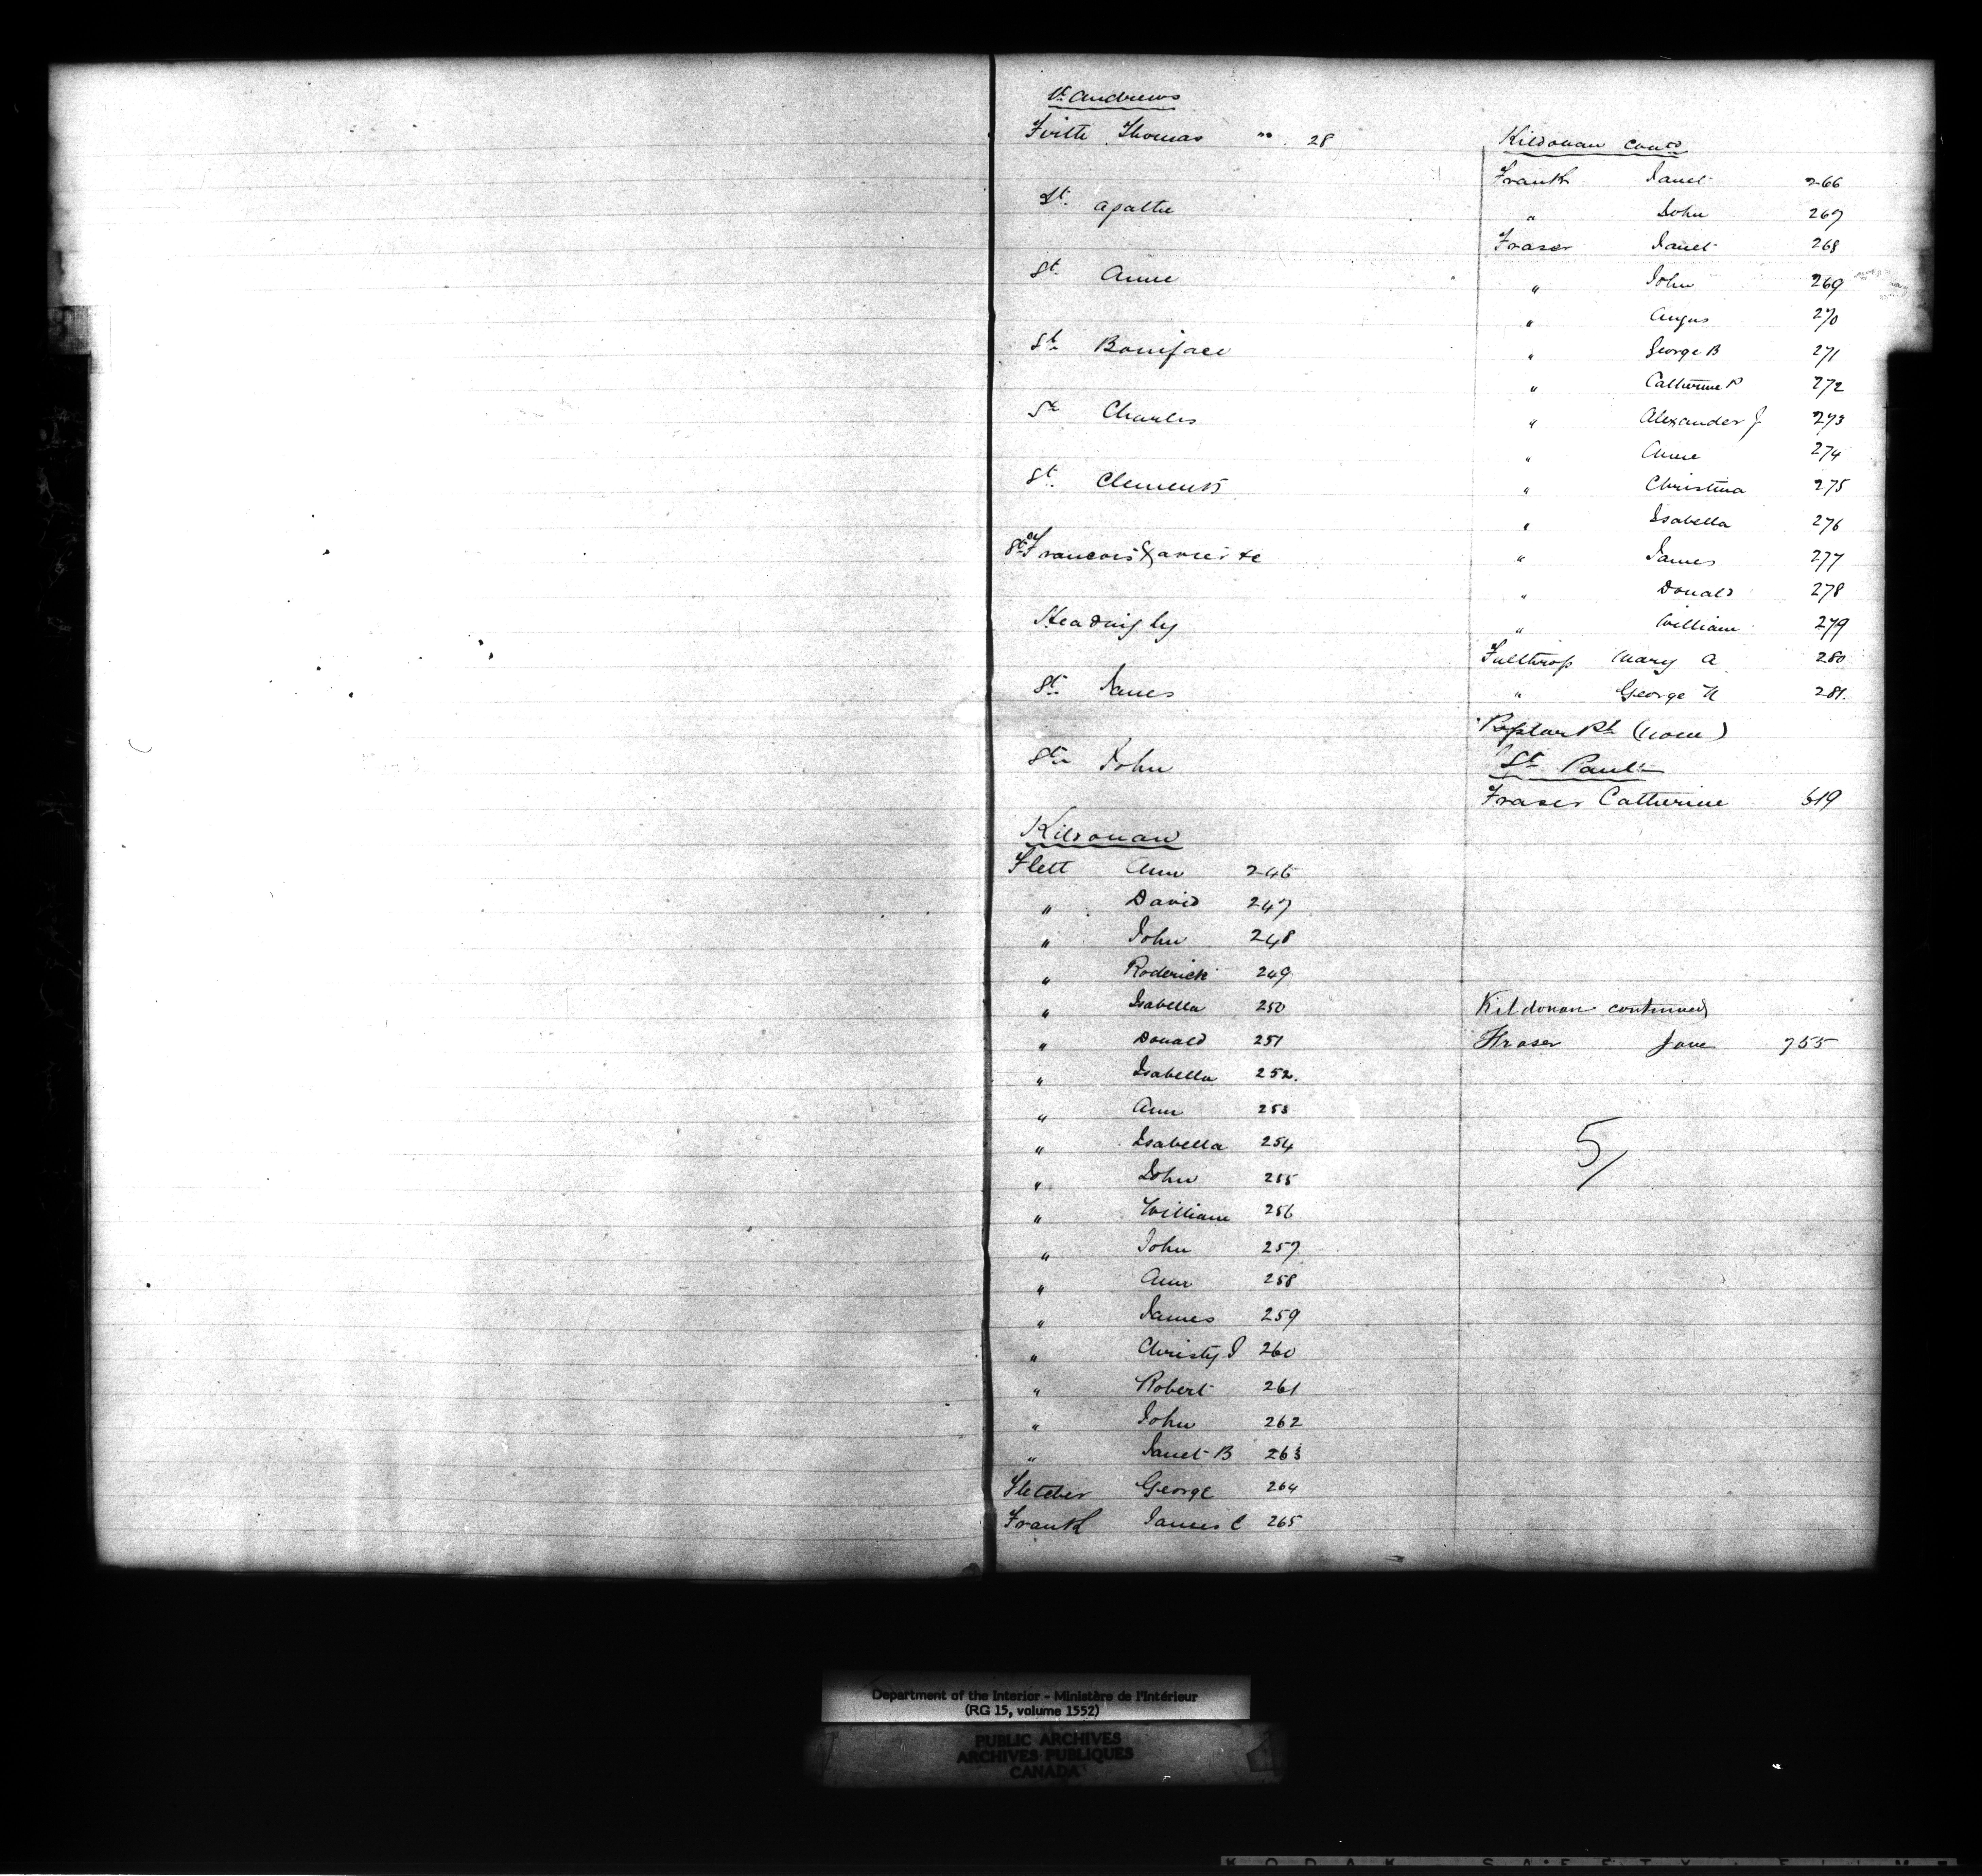 St. Andrews
Firth Thomas no. 28
St. Agathe
St. Anne
St. Boniface
St. Charles
St. Clements
St. Francois Xavier &c
Headingly
St. James
St. John
Kildonan
Flett Ann 246
" David 247
" John 248
" Roderick 249
" Isabella 250
" Donald 251
" Isabella 252.
" Ann 253
" Isabella 254
" John 255
" William 256
" John 257
" Ann 258
" James 259
" Christy J 260
" Robert 261
" John 262
" Janet B 263
Fletcher George 264
Frank James C 265
Kildonan contd
Frank Janet 266
" John 267
Fraser Janet 268
" John 269
" Angus 270
" George B 271
" Catherine P 272
" Alexander J 273
" Anne 274
" Christina 275
" Isabella 276
" James 277
" Donald 278
" William 279
Fulthrop Mary A 280
" George N 281.
Poplar Pt (none)
St. Pauls
Fraser Catherine 619
Kildonan continued
Fraser Jane 755
5/
Department of the Interior - Ministère de l'Intérieur
(RG 15, volume 1552)
PUBLIC ARCHIVES
ARCHIVES PUBLIQUES
CANADA
KODAK SAFETY FILM